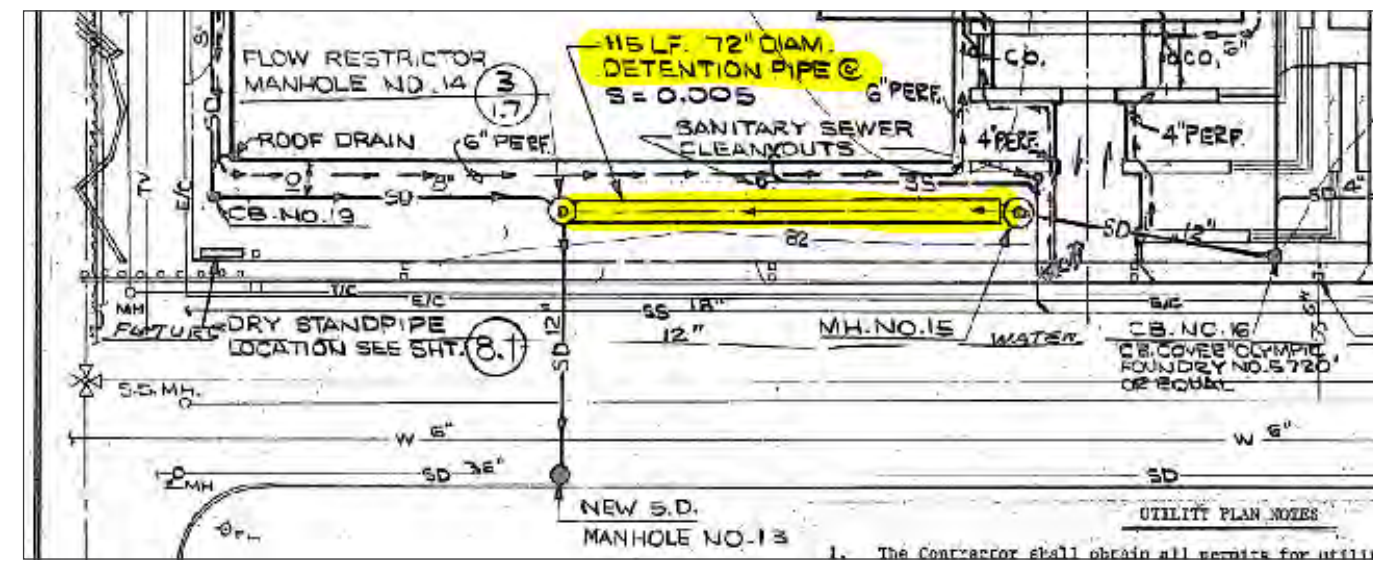 8"
FLOW RESTRICTOR
MANHOLE NO. 14
3
1.7
115 LF. 72" DIAM.
DETENTION PIPE @
S = 0.005
6" PERF.
C.O.
C.O.
6"
SD
ROOF DRAIN
6" PERF.
SANITARY SEWER
CLEANOUTS
4" PERF.
4" PERF.
TV
E/C
10
8"
SS
SD
4"
SD
CB. NO. 19
82
SD
12"
T/C
E/C
SS 18"
E/C
MH
FUTURE
DRY STANDPIPE
LOCATION SEE SHT.
8.1
SD 12"
12"
MH. NO. 15
WATER
CB. NO. 16
CB. COVER "OLYMPIC
FOUNDRY NO. 5720"
OR EQUAL
SS 6"
S.S. MH.
W 6"
W 6"
MH
SD 36"
SD
NEW S.D.
MANHOLE NO. 13
UTILITY PLAN NOTES
1. The Contractor shall obtain all permits for